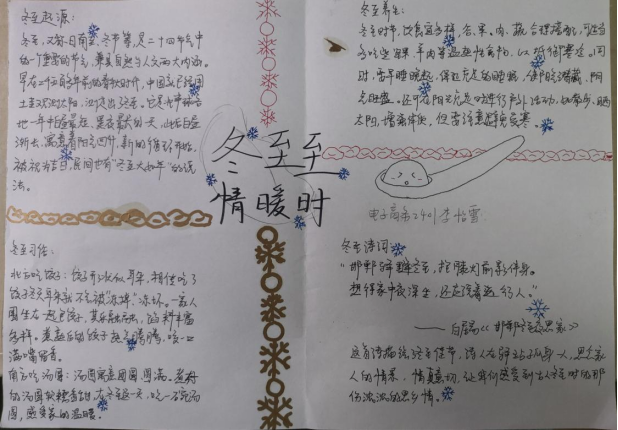 冬至起源：
冬至，又称日南至、冬节等，是二十四节气中
的一个重要的节气，兼具自然与人文两大内涵。
早在二千五百多年前的春秋时代，中国就已经用
土圭观测太阳，测定出冬至。它是北半球各
地一年中白昼最短、黑夜最长的一天，此后白昼
渐长，寓意着阳气回升，新的循环开始，
被视为吉日，民间也有"冬至大如年"的说
法。
冬至养生：
冬至时节，饮食宜多样，谷、果、肉、蔬合理搭配，可适当
多吃些坚果、羊肉等温热性食物，以抵御寒冷。同
时，需早睡晚起，保证充足的睡眠，使阴气潜藏，阳
气旺盛。还可在阳光充足时进行户外活动，如散步、晒
太阳，增强体质，但需注意避免受寒。
冬至至
情暖时
电子商务2401 李怡雪
冬至习俗：
北方吃饺子：饺子形状似耳朵，相传吃了
饺子冬天耳朵就不会被冻掉。一家人
围坐在一起包饺子，其乐融融，馅料丰富
多样。煮熟后的饺子热气腾腾，咬一口
满嘴留香。
南方吃汤圆：汤圆寓意团圆、圆满。煮好
的汤圆软糯香甜，在冬至这一天，吃一碗汤
圆，感受家的温暖。
冬至诗词
"邯郸驿里逢冬至，抱膝灯前影伴身。
想得家中夜深坐，还应说着远行人。"
——白居易《邯郸冬至夜思家》
这首诗描绘了冬至佳节，诗人在驿站孤身一人，思念家
人的情景，情真意切，让我们感受到古人冬至时的那
份浓浓的思乡情。